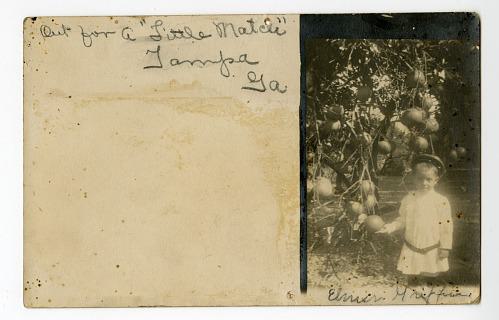 Out for a "Little Match"
Tampa
Ga
Elmer Griffin